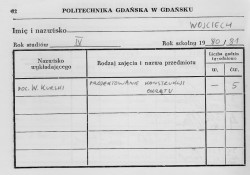 62 POLITECHNIKA GDAŃSKA W GDAŃSKU
Imię i nazwisko WOJCIECH
Rok studiów IV Rok szkolny 19 80/81
Nazwisko wykładającego
Rodzaj zajęcia i nazwa przedmiotu
Liczba godzin tygodniowo
w. ćw.
DOC. W. PROJEKTOWANIE KONSTRUKCJI — 5
OKRĘTU